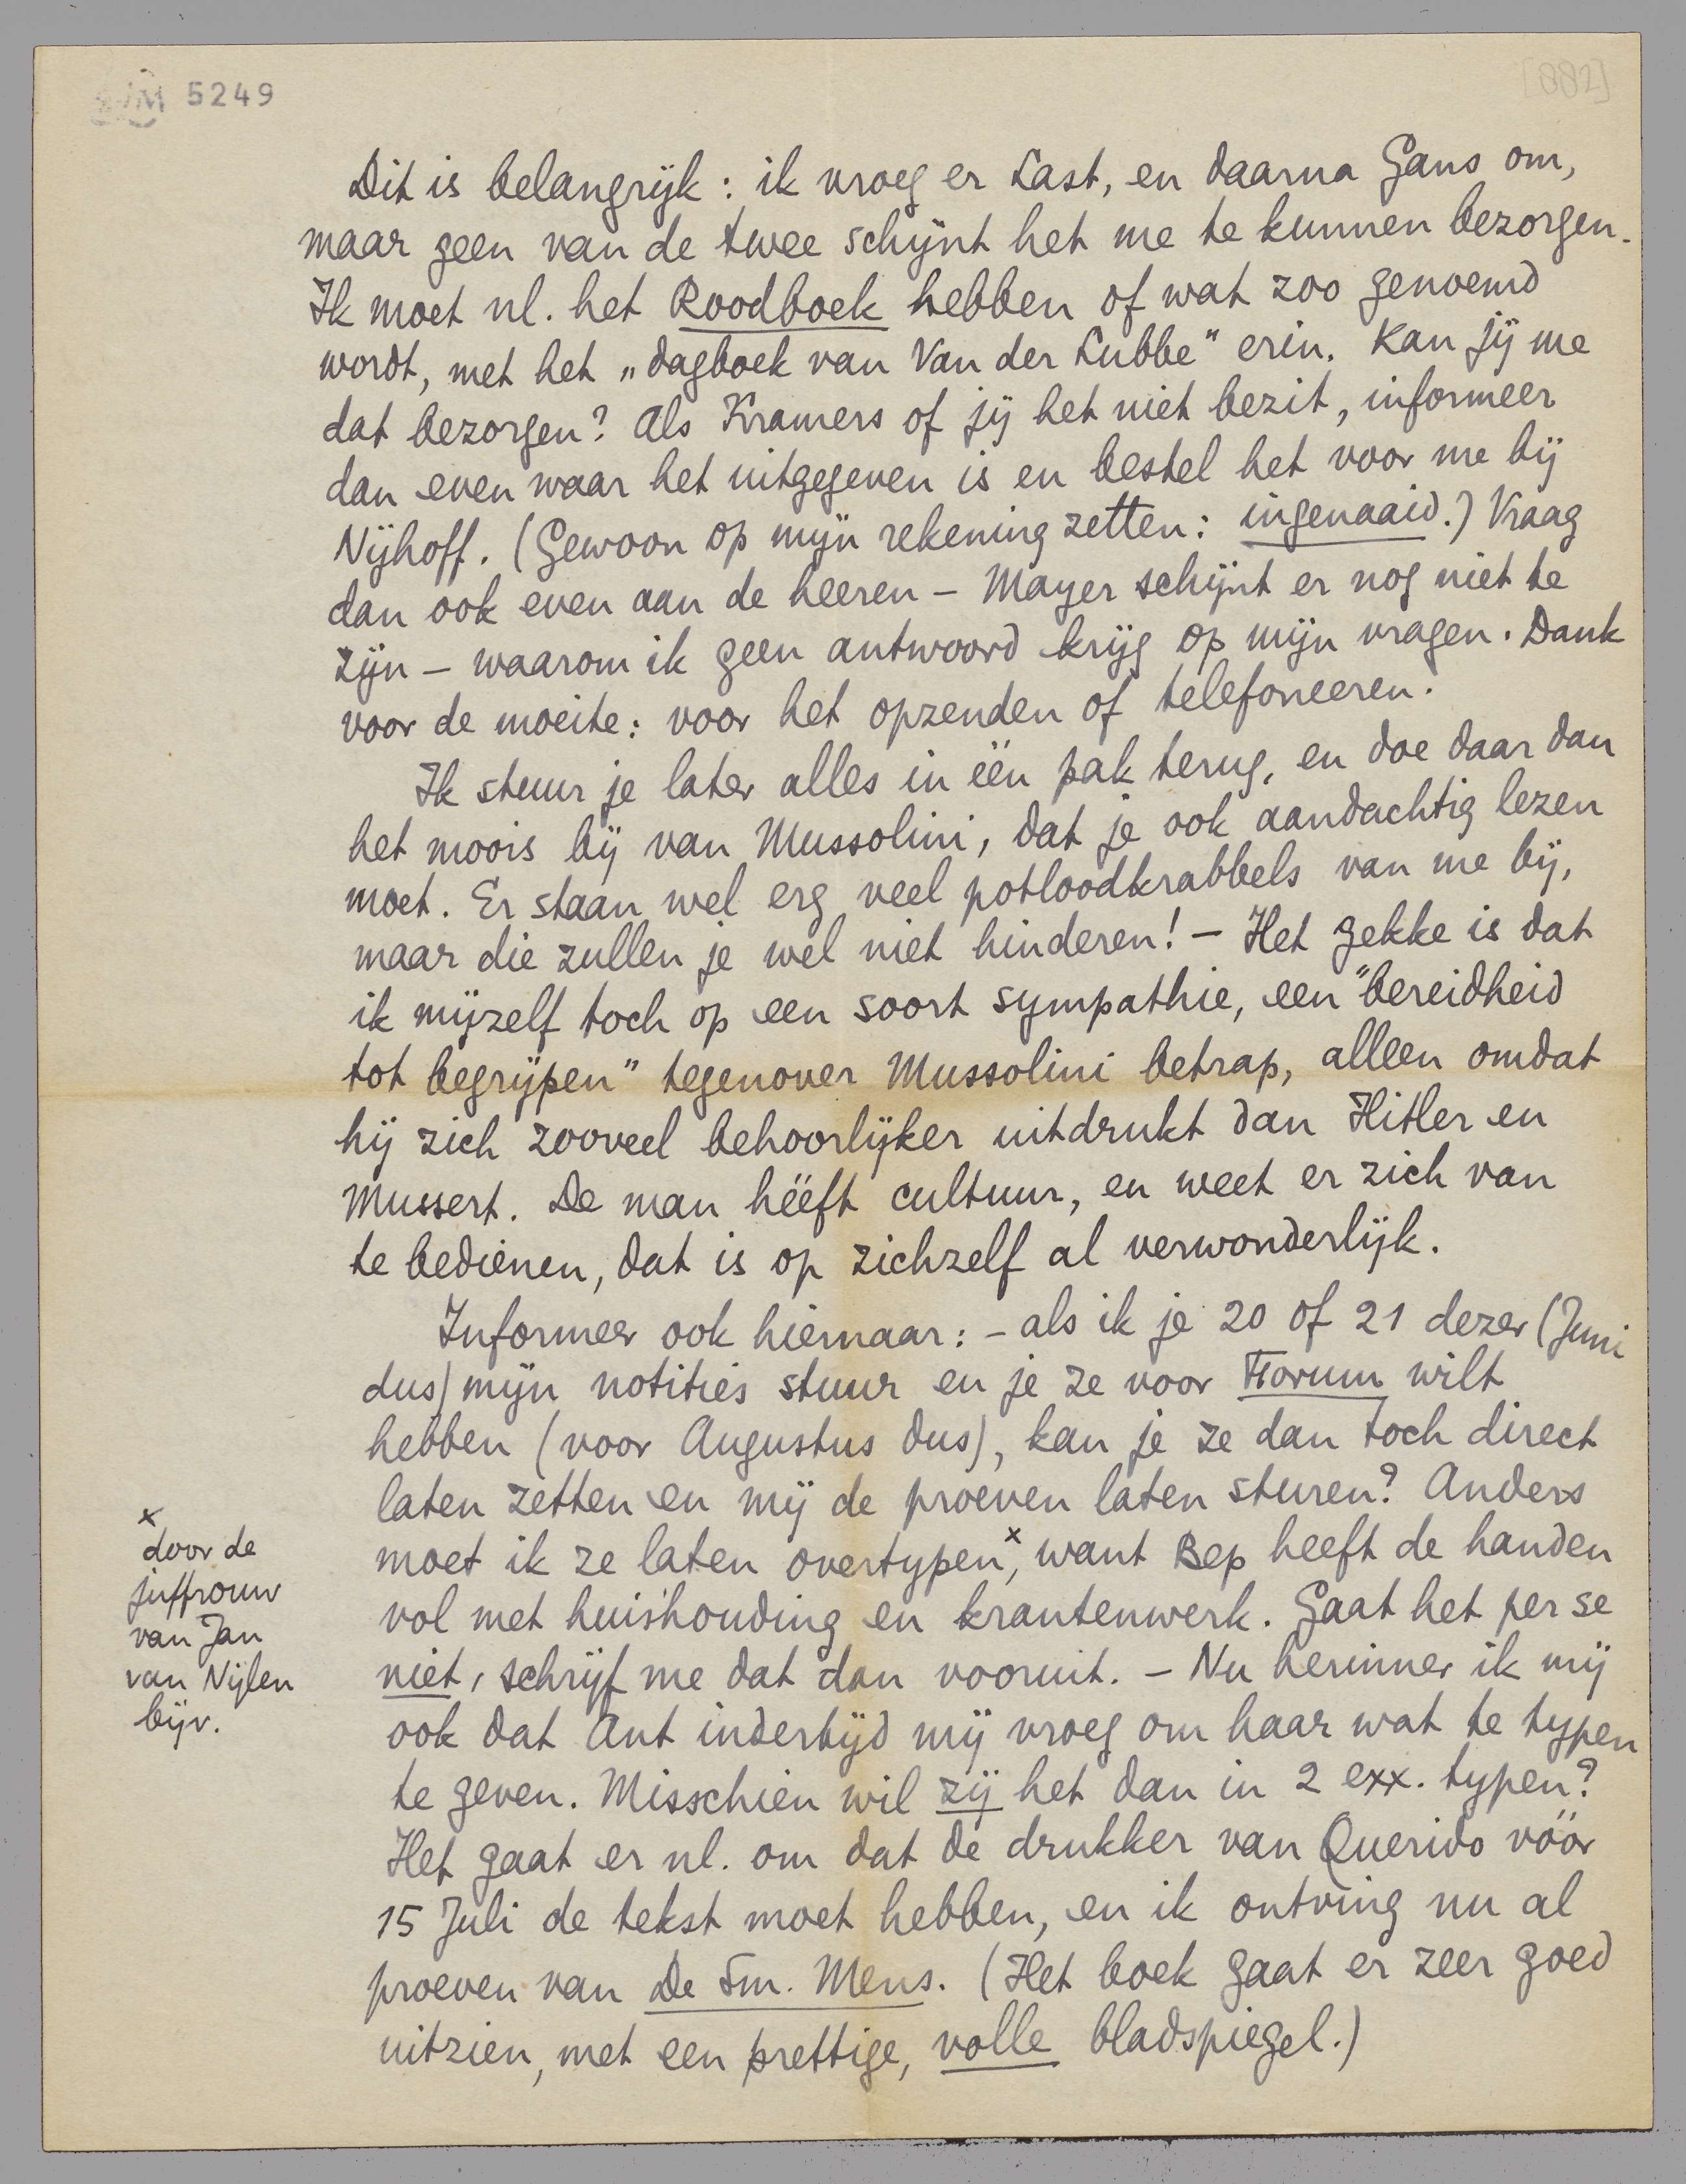 5249
[882]
Dit is belangrijk: ik vroeg er Last, en daarna Gans om,
maar geen van de twee schijnt het me te kunnen bezorgen.
Ik moet nl. het Roodboek hebben of wat zoo genoemd
wordt, met het „dagboek van Van der Lubbe" erin. Kan jij me
dat bezorgen? Als Kramers of jij het niet bezit, informeer
dan even waar het uitgegeven is en bestel het voor me bij
Nijhoff. (Gewoon op mijn rekening zetten: ingenaaid.) Vraag
dan ook even aan de heeren – Mayer schijnt er nog niet te
zijn – waarom ik geen antwoord krijg op mijn vragen. Dank
voor de moeite: voor het opzenden of telefoneeren.
Ik stuur je later alles in één pak terug, en doe daar dan
het moois bij van Mussolini, dat je ook aandachtig lezen
moet. Er staan wel erg veel potloodkrabbels van me bij,
maar die zullen je wel niet hinderen! – Het gekke is dat
ik mijzelf toch op een soort sympathie, een "bereidheid
tot begrijpen" tegenover Mussolini betrap, alleen omdat
hij zich zooveel behoorlijker uitdrukt dan Hitler en
Mussert. De man hééft cultuur, en weet er zich van
te bedienen, dat is op zichzelf al verwonderlijk.
Informeer ook hiernaar: – als ik je 20 of 21 dezer (Juni
dus) mijn notities stuur en je ze voor Forum wilt
hebben (voor Augustus dus), kan je ze dan toch direct
laten zetten en mij de proeven laten sturen? Anders
moet ik ze laten overtypen,ˣ want Bep heeft de handen
vol met huishouding en krantenwerk. Gaat het per se
niet, schrijf me dat dan vooruit. – Nu herinner ik mij
ook dat Ant indertijd mij vroeg om haar wat te typen
te geven. Misschien wil zij het dan in 2 exx. typen?
Het gaat er nl. om dat de drukker van Querido vóór
15 Juli de tekst moet hebben, en ik ontving nu al
proeven van De Sm. Mens. (Het boek gaat er zeer goed
uitzien, met een prettige, volle bladspiegel.)
x
door de
juffrouw
van Jan
van Nijlen
bijv.